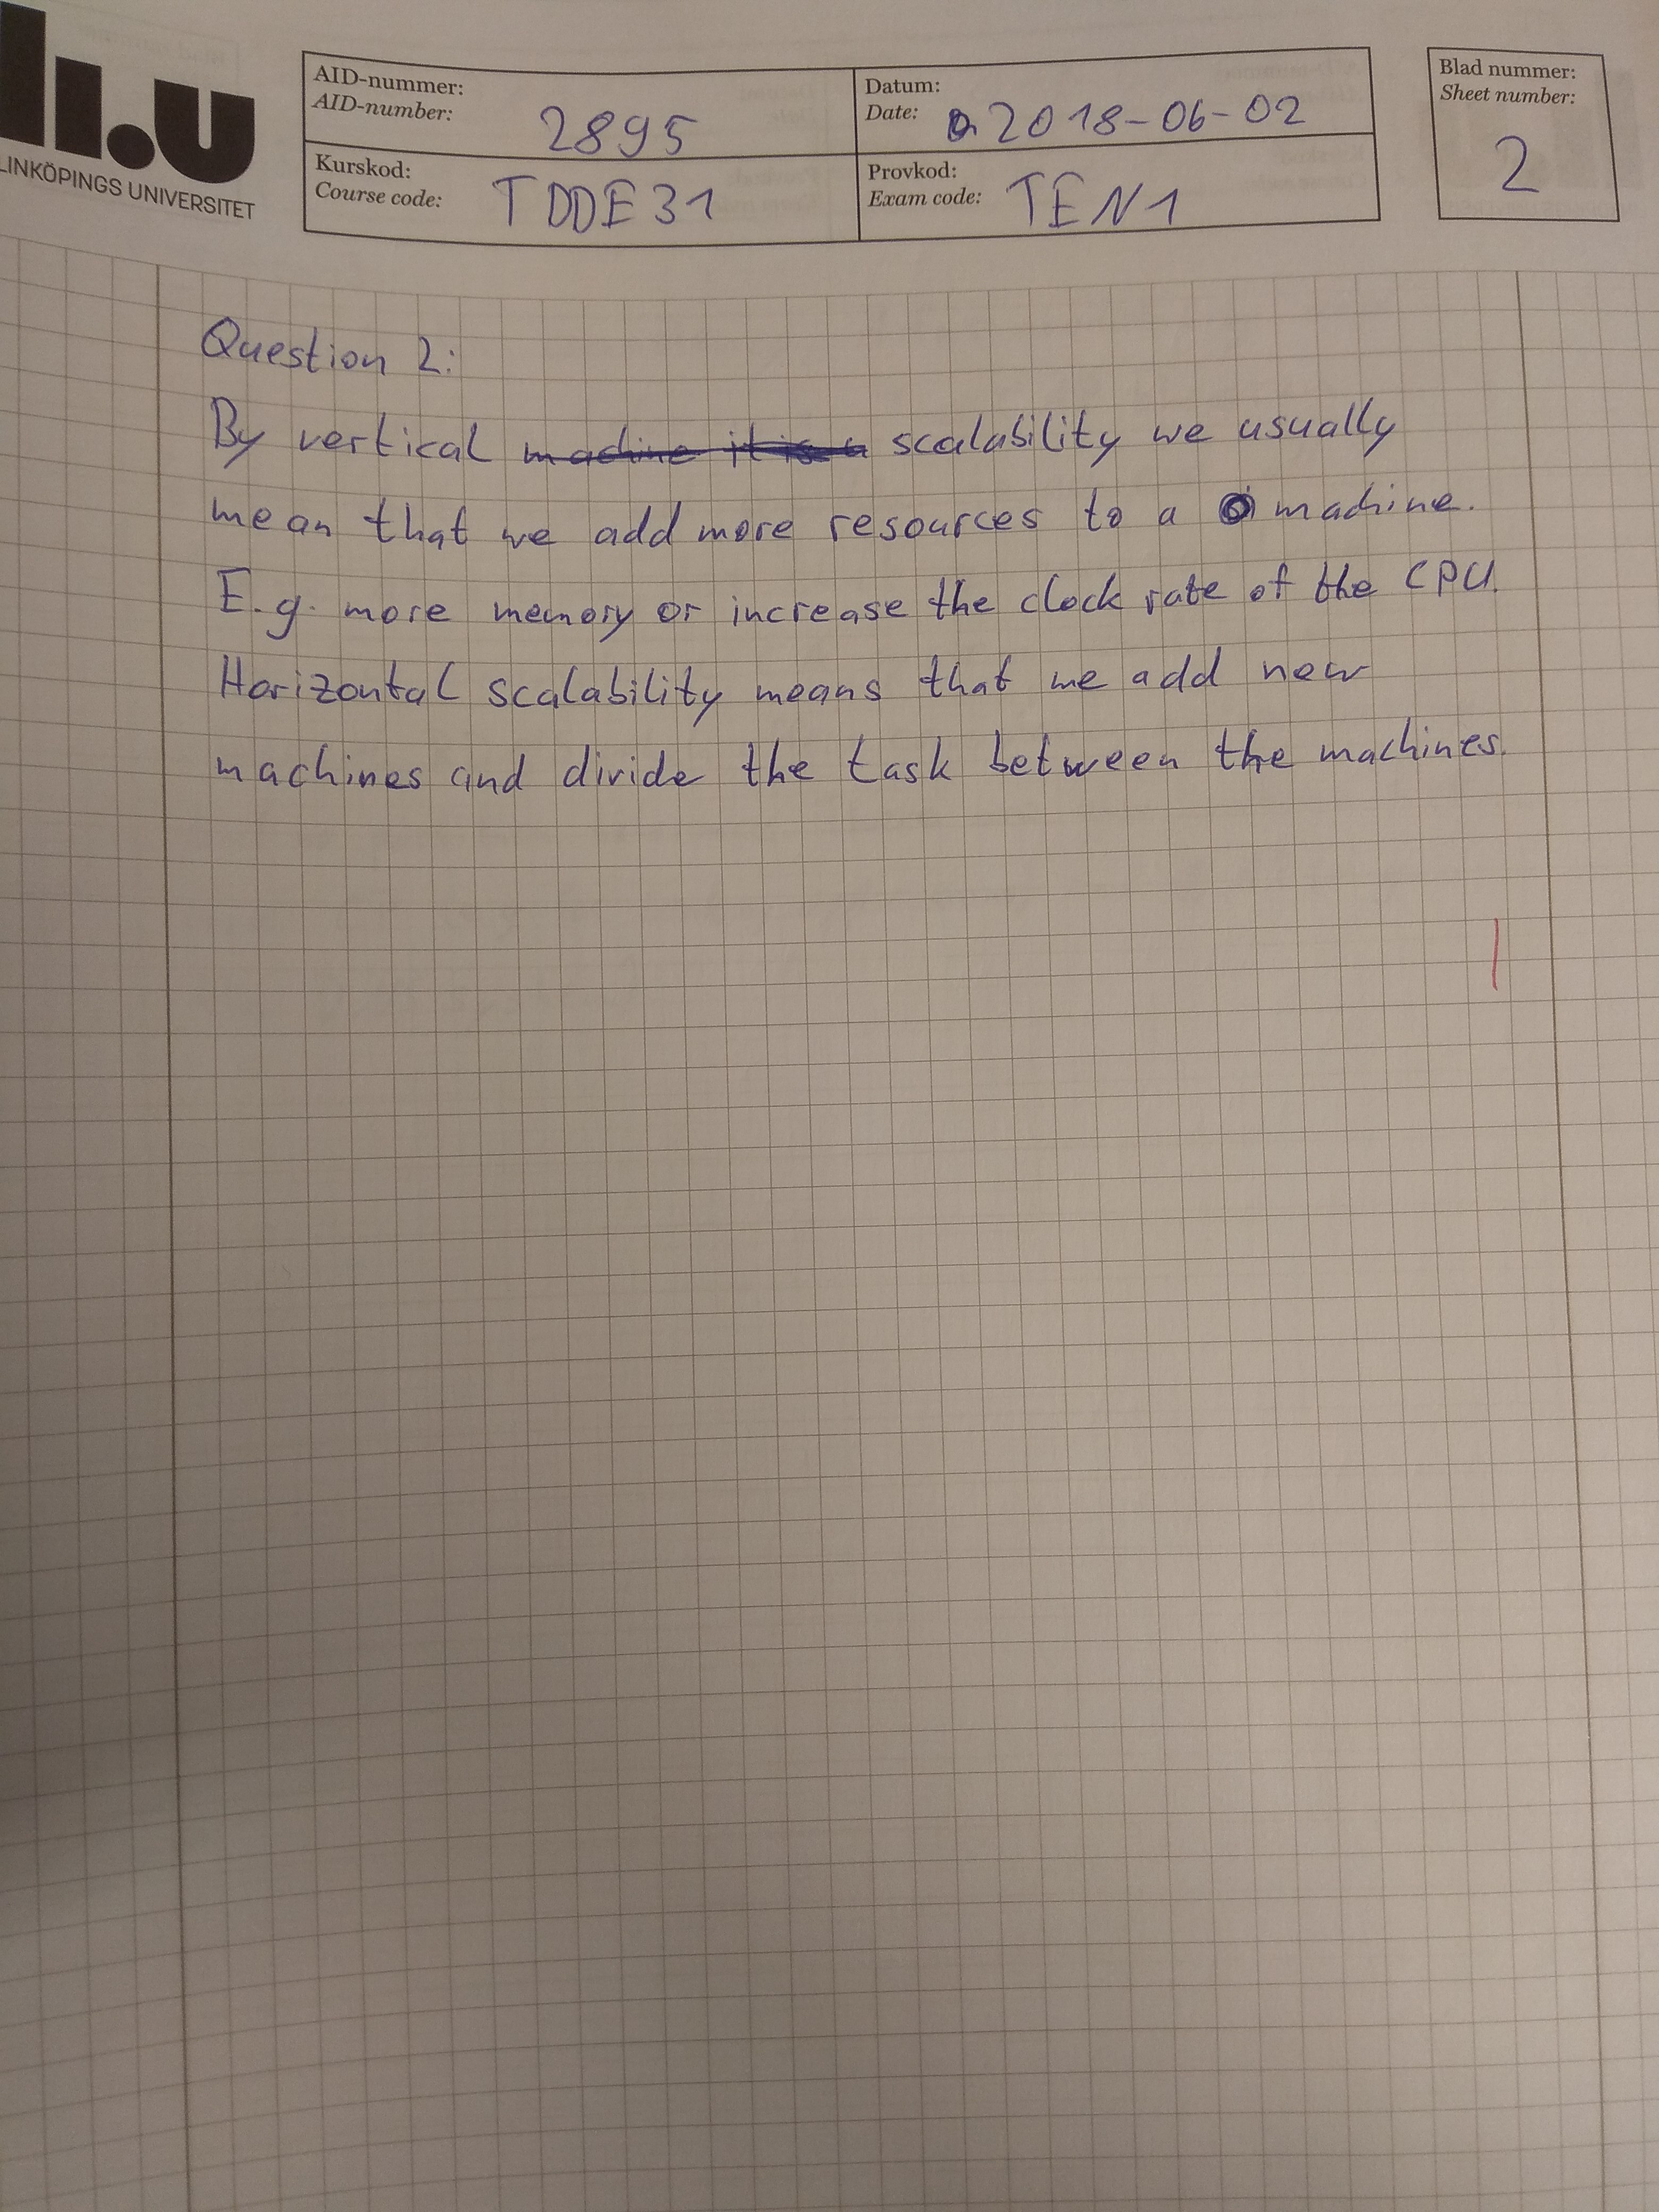 li.u
LINKÖPINGS UNIVERSITET
AID-nummer:
AID-number: 2895
Datum:
Date: 2018-06-02
Kurskod:
Course code: TDDE31
Provkod:
Exam code: TEN1
Blad nummer:
Sheet number:
2
Question 2:
By vertical machine it is a scalability we usually
mean that we add more resources to a machine.
E.g. more memory or increase the clock rate of the CPU.
Horizontal scalability means that we add new
machines and divide the task between the machines.